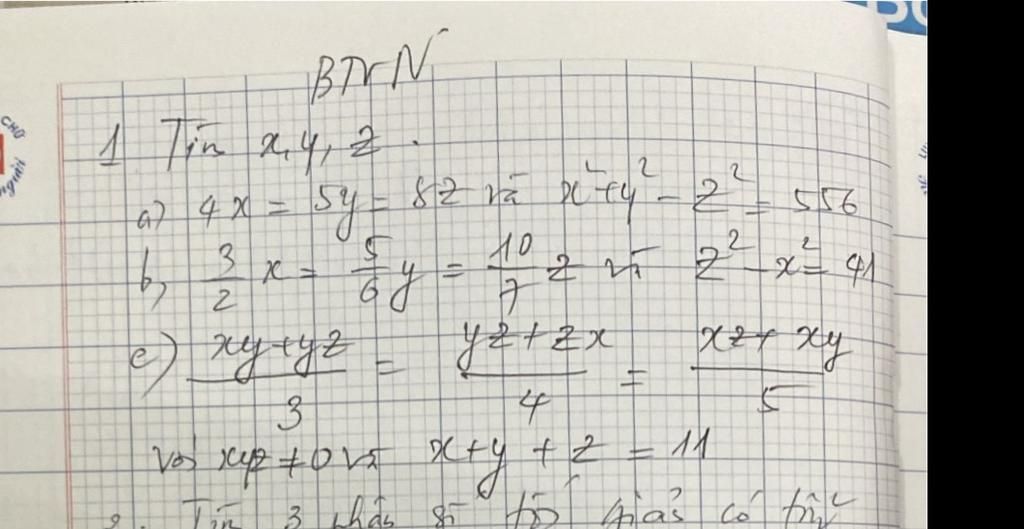 BTVN
1 Tìm x, y, z.
a) 4x = 5y = 8z và x² + y² - z² = 556
b, 3/2 x = 5/6 y = 10/7 z và z² - x² = 41
c) xy+yz/3 = yz+zx/4 = xz+xy/5
Với xyz ≠ 0 và x+y+z = 11
2. Tìm 3 phân số tối giản có
CHỮ
người